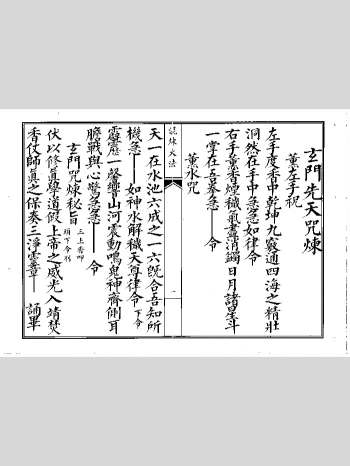 玄門先天咒煉
薰左手祝
左手度香中乾坤九竅通四海之精壯
洞然在手中急急如律令
右手薰香煙穢氣盡消鐲日月諸星斗
一掌在吾拳急——令
薰水咒
誌煉大法
一
天一在水池六成之一六既合吾知所
機急——如神水解穢天尊律令下令
霹靂一聲響山河震動鳴鬼神齊側耳
膽戰與心驚急急——令
玄門咒煉秘旨三上香啣
頭下令
伏以修真學道假上帝之威光入靖焚
香仗師真之保奏三淨靈章——誦畢